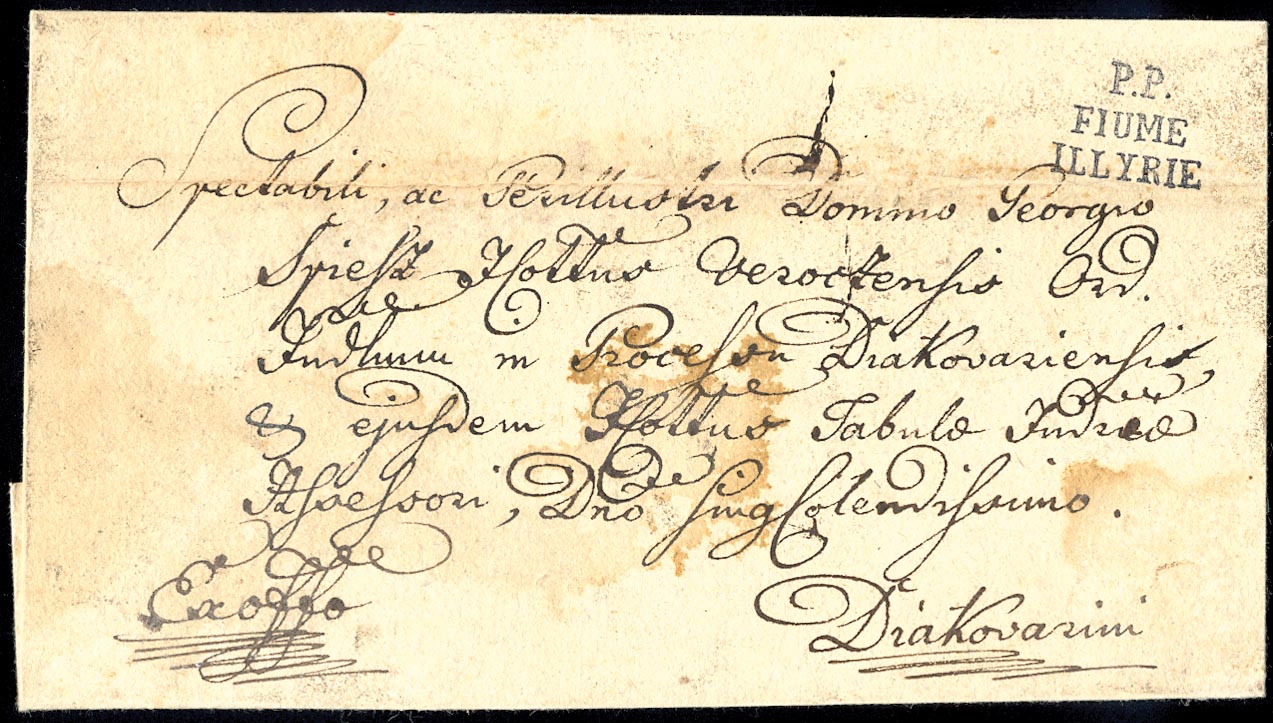 P.P.
FIUME
ILLYRIE
Spectabili, ac Perillustri Domino Georgio
Spiesz Icottus Veroczensis Ord.
Judlium in Processu Diakovariensis,
& ejusdem Icottus Tabulæ Judræ
Assessori, Dno singcolendissimo.
Exoffo
Diakovarini